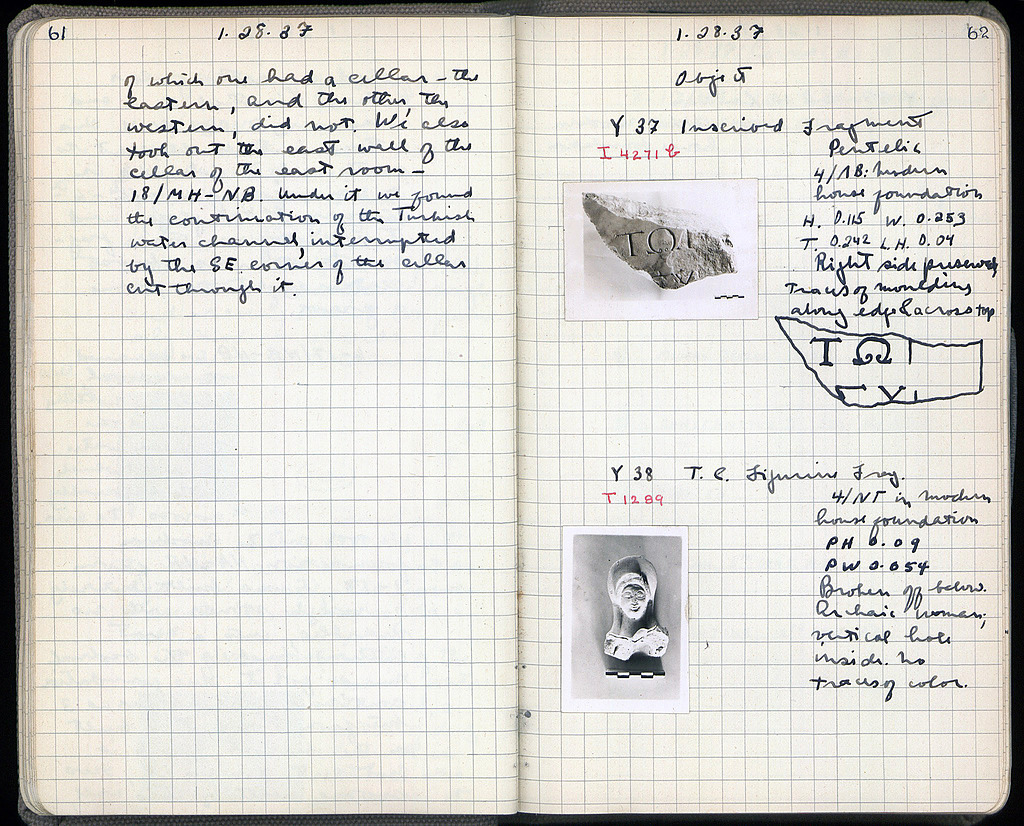 61
1.28.37
of which one had a cellar – the
eastern, and the other, the
western, did not. We also
took out the east wall of the
cellar of the east room –
18/MH–NB. Under it we found
the continuation of the Turkish
water channel, interrupted
by the SE. corner of the cellar
cut through it.
1.28.37
62
Object
Y 37 Inscribed Fragment
I 4271 b
Pentelic
4/ΛB: modern
house foundation
H. 0.115 W. 0.253
T. 0.242 L.H. 0.04
Right side preserved
Traces of moulding
along edge & across top
ΤΩΙ
ΤΩΙ
Y 38 T.C. Figurine Frag.
T 1289
4/NΓ in modern
house foundation
PH 0.09
PW 0.054
Broken off below.
Archaic woman;
vertical hole
inside. No
traces of color.